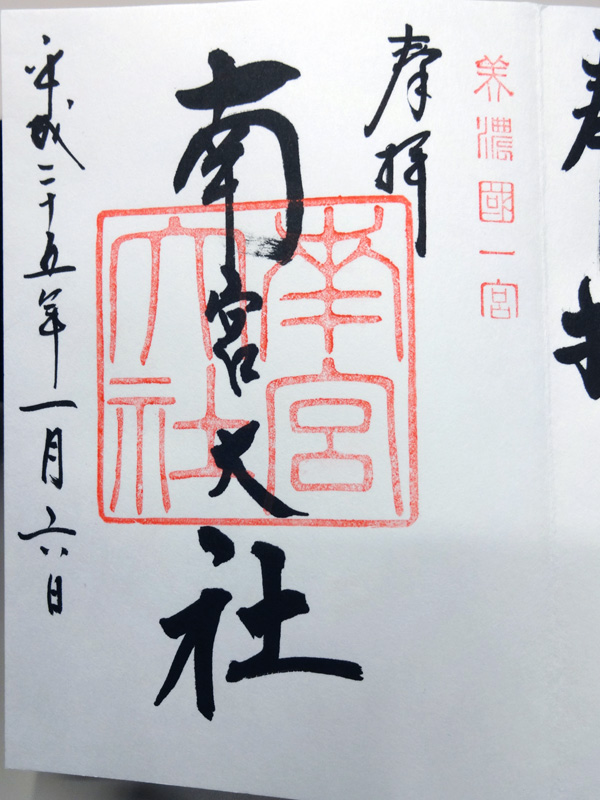 美濃國一宮
奉拝
南宮大社
南宮大社
平成二十五年一月六日